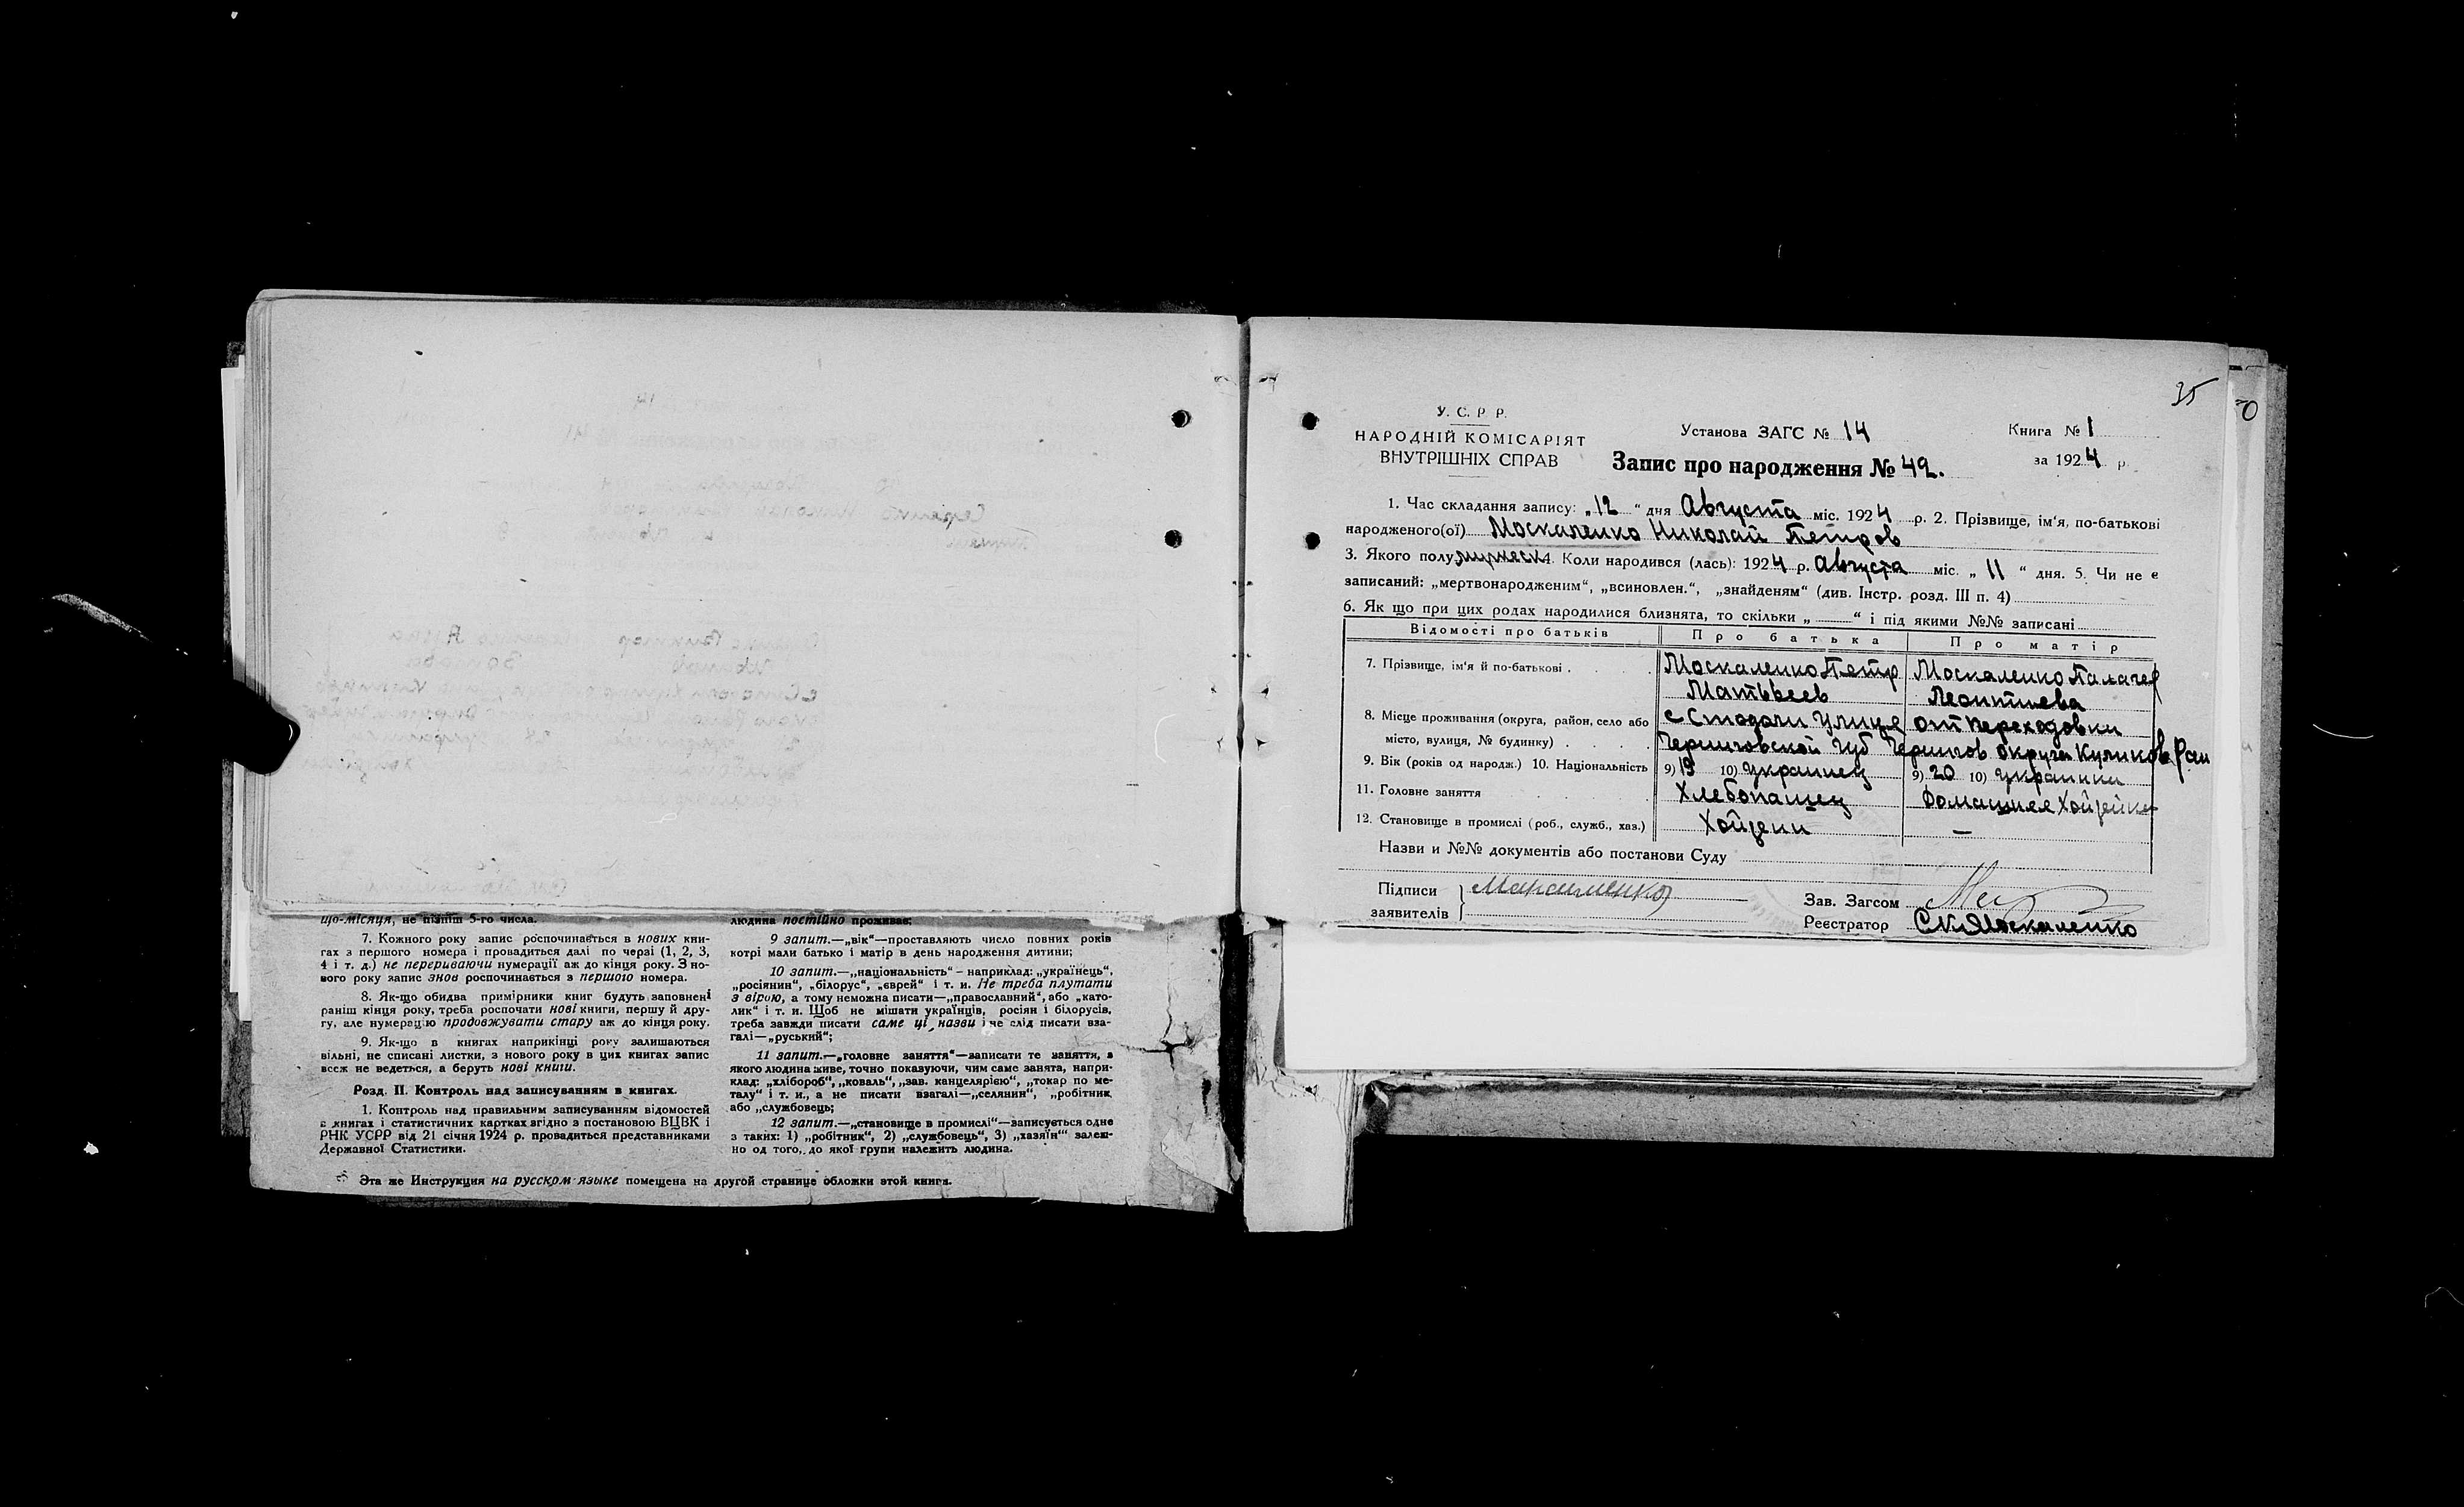 що-місяця, не пізніш 5-го числа.
7. Кожного року запис роспочинається в нових кни-
гах з першого номера і провадиться далі по черзі (1, 2, 3,
4 і т. д.) не перериваючи нумерації аж до кінця року. З но-
вого року запис знов роспочинається з першого номера.
8. Як-що обидва примірники книг будуть заповнені
раніш кінця року, треба роспочати нові книги, першу й дру-
гу, але нумерацію продовжувати стару аж до кінця року.
9. Як-що в книгах наприкінці року залишаються
вільні, не списані листки, з нового року в цих книгах запис
всеж не ведеться, а беруть нові книги.
Розд. II. Контроль над записуванням в книгах.
1. Контроль над правильним записуванням відомостей
в книгах і статистичних картках згідно з постановою ВЦВК і
РНК УСРР від 21 січня 1924 р. провадиться представниками
Державної Статистики.
людина постійно проживає;
9 запит.—„вік“—проставляють число повних років
котрі мали батько і матір в день народження дитини;
10 запит.—„національність“ – наприклад: „українець“,
„росіянин“, „білорус“, „єврей“ і т. и. Не треба плутати
з вірою, а тому неможна писати—„православний“, або „като-
лик“ і т. и. Щоб не мішати українців, росіян і білорусів,
треба завжди писати саме ці назви і не слід писати вза-
галі—„руський“;
11 запит.—„головне заняття“—записати те заняття, з
якого людина живе, точно показуючи, чим саме занята, напри-
клад: „хлібороб“, „коваль“, „зав. канцелярією“, „токар по ме-
талу“ і т. и., а не писати взагалі—„селянин“, „робітник,
або „службовець;
12 запит.—„становище в промислі“—записується одне
з таких: 1) „робітник“, 2) „службовець“, 3) „хазяїн“ залеж-
но од того, до якої групи належить людина.
Эта же Инструкция на русском языке помещена на другой странице обложки этой книги.
35
У. С. Р. Р.
НАРОДНІЙ КОМІСАРІЯТ
ВНУТРІШНІХ СПРАВ
Установа ЗАГС № 14
Книга № 1
Запис про народження № 42.
за 1924 р.
1. Час складання запису: „12“ дня Августа міс. 1924 р. 2. Прізвище, ім‘я, по-батькові
народженого(ої) Москаленко Николай Петров
3. Якого полу мужеск 4. Коли народився (лась): 1924 р. Августа міс. „11“ дня. 5. Чи не є
записаний: „мертвонародженим“, „всиновлен.“, „знайденям“ (див. Інстр. розд. III п. 4)
6. Як що при цих родах народилися близнята, то скільки „ “ і під якими №№ записані
Відомості про батьків Про батька Про матір
7. Прізвище, ім‘я й по-батькові Москаленко Петр Москаленко Палагея
Матвеев Леонтиева
8. Місце проживання (округа, район, село або с Стодоли Улице от Переходовки
місто, вулиця, № будинку) Черниговской губ Чернигов округа Куликов Рай
9. Вік (років од народж.) 10. Національність 9) 19 10) украинец 9) 20 10) украинка
11. Головне заняття Хлебопашец Домашняя Хойзейка
12. Становище в промислі (роб., служб., хаз.) Хойзеин —
Назви и №№ документів або постанови Суду
Підписи
заявителів
Зав. Загсом
Реєстратор Москаленко